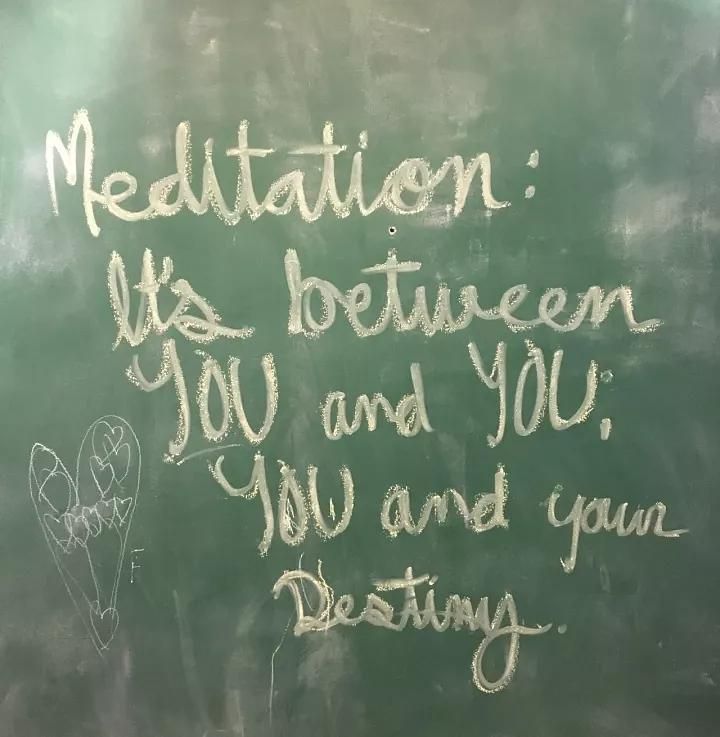 Meditation:
It's between
YOU and YOU;
YOU and your
Destiny.
F